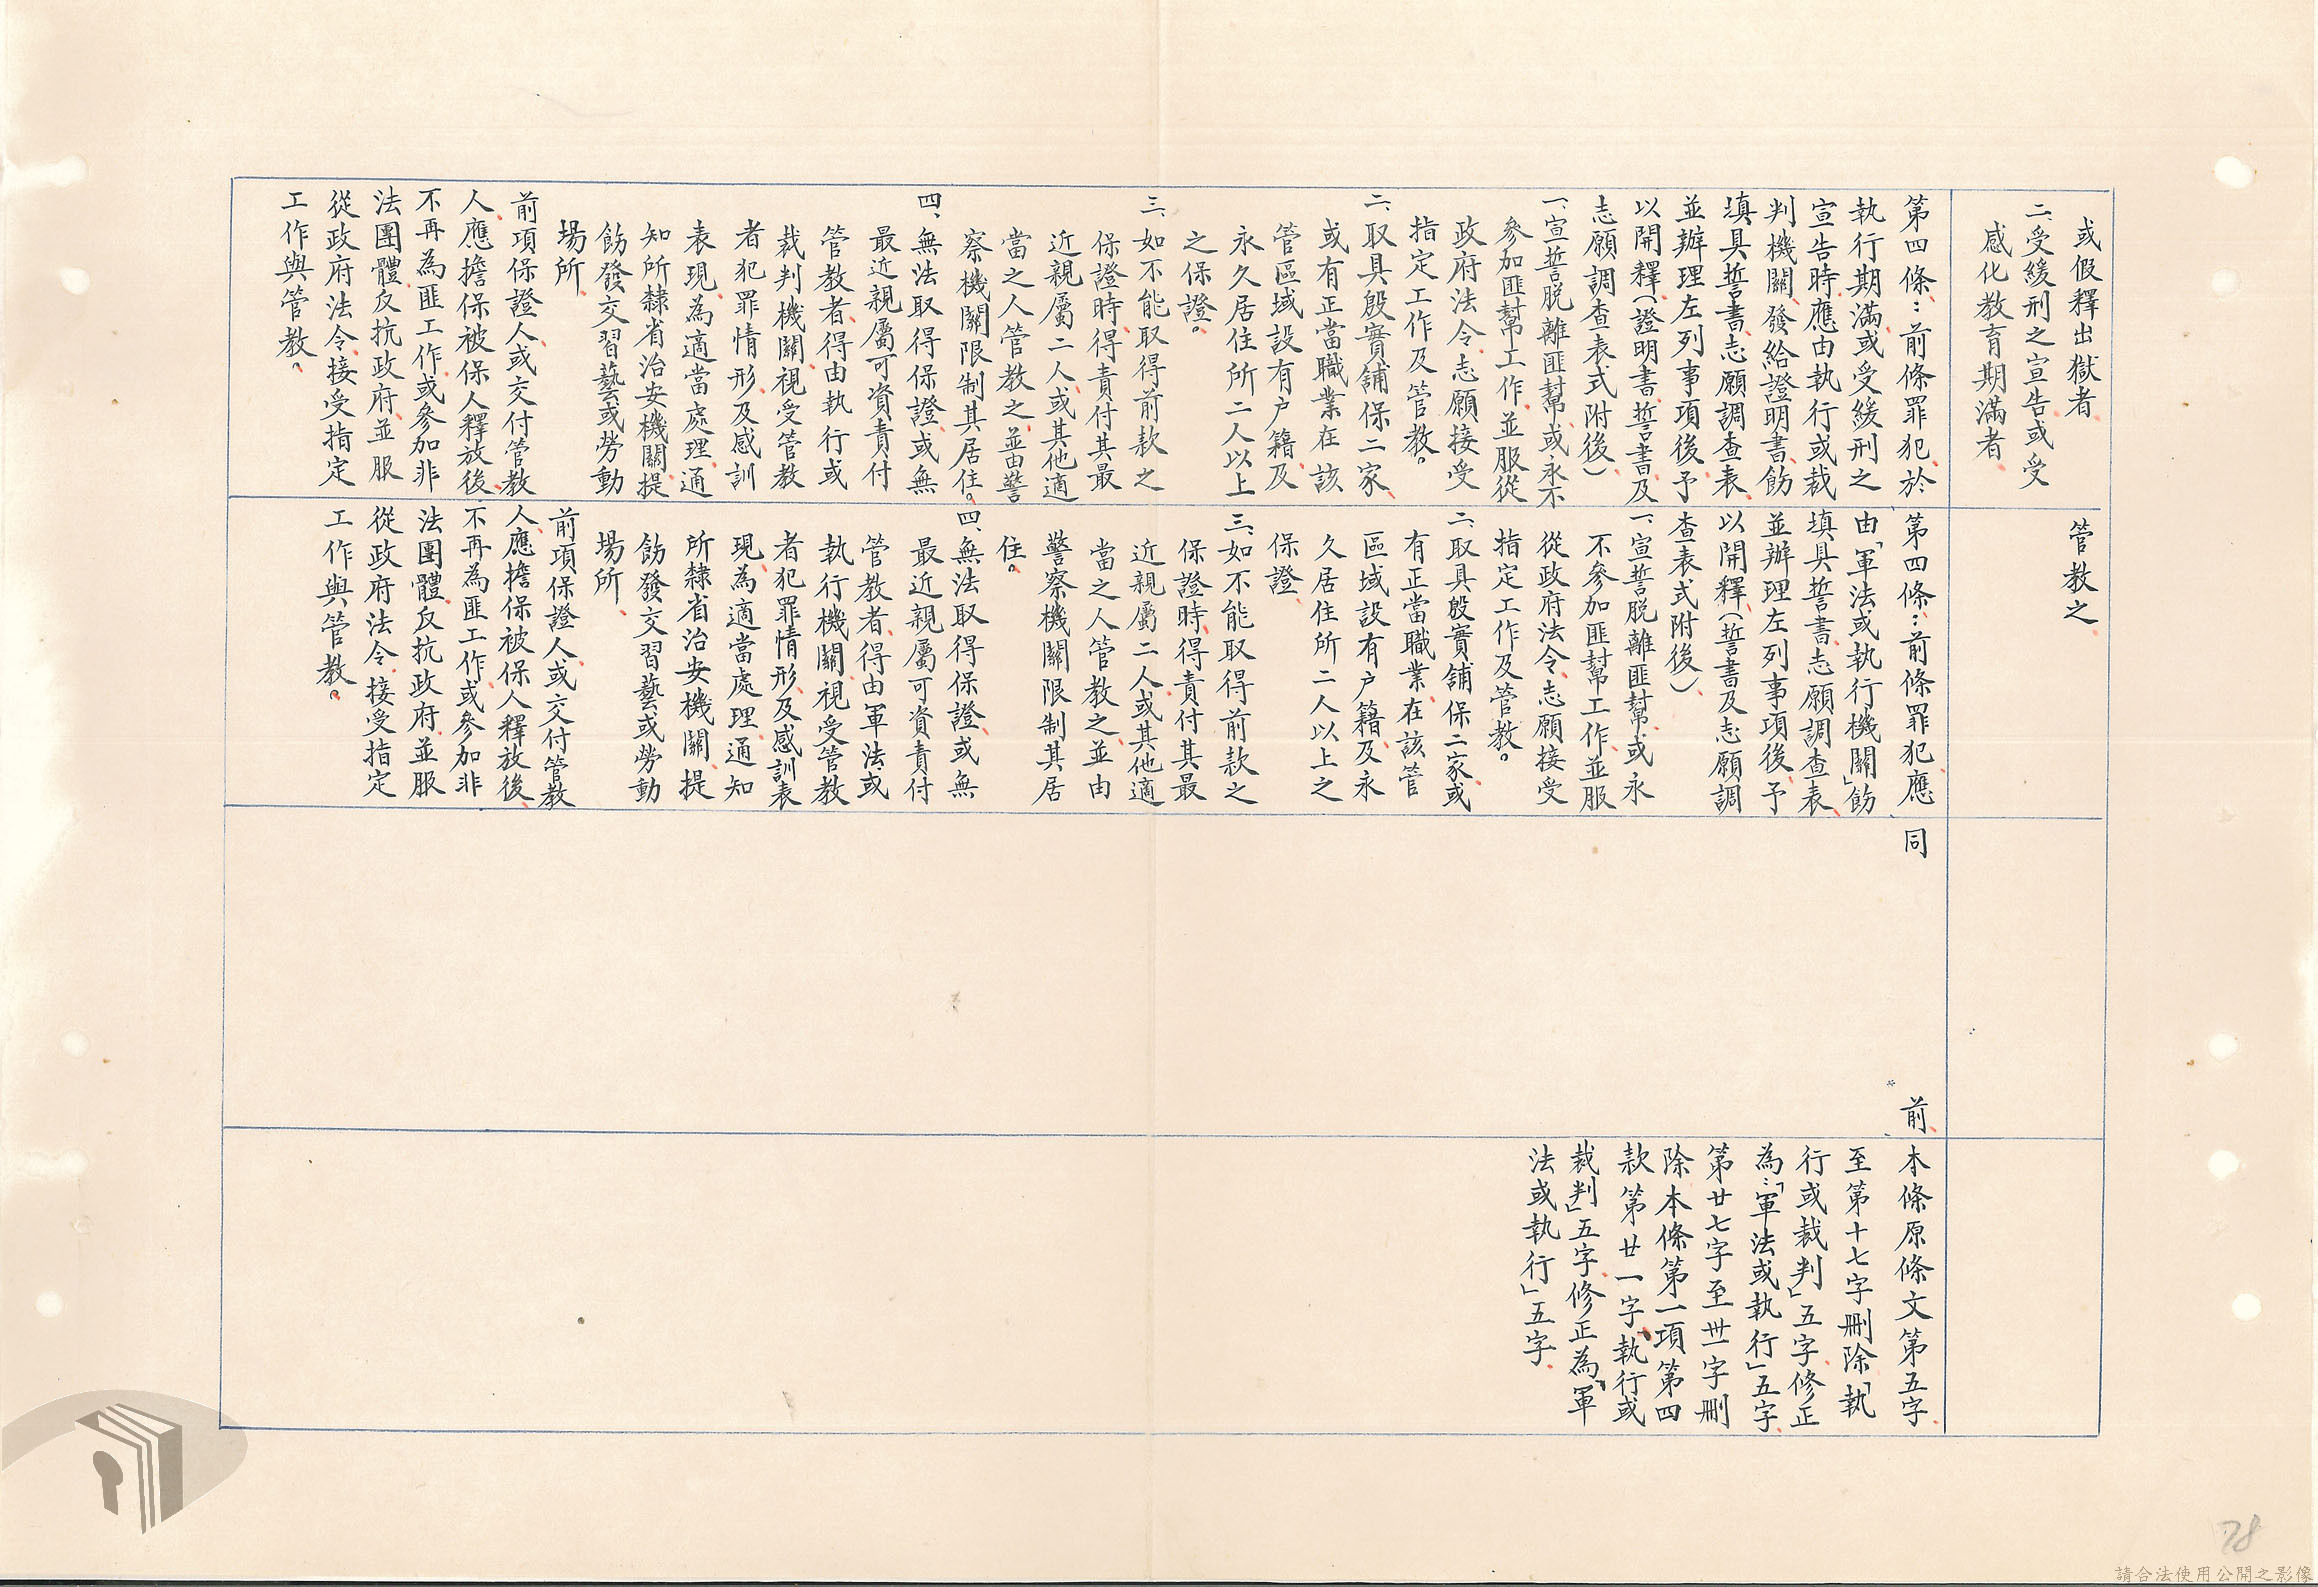 或假釋出獄者、
二、受緩刑之宣告或受
感化教育期滿者、
管教之、
第四條：前條罪犯於
執行期滿或受緩刑之
宣告時、應由執行或裁
判機關、發給證明書、飭
填具誓書、志願調查表、
並辦理左列事項後、予
以開釋（證明書、誓書、及
志願調查表式附後）
一、宣誓脫離匪幫、或永不
參加匪幫工作、並服從
政府法令、志願接受
指定工作及管教。
二、取具殷實舖保二家、
或有正當職業在該
管區域設有户籍、及
永久居住所二人以上
之保證。
三、如不能取得前款之
保證時、得責付其最
近親屬二人、或其他適
當之人管教之、並由警
察機關限制其居住。
四、無法取得保證、或無
最近親屬可資責付
管教者、得由執行或
裁判機關、視受管教
者犯罪情形、及感訓
表現、為適當處理、通
知所隸省治安機關、提
飭發交習藝或勞動
場所、
前項保證人、或交付管教
人、應擔保被保人釋放後、
不再為匪工作、或參加非
法團體、反抗政府、並服
從政府法令、接受指定
工作與管教。
第四條：前條罪犯、應
由「軍法或執行機關」飭
填具誓書、志願調查表、
並辦理左列事項後、予
以開釋、（誓書及志願調
查表式附後）、
一、宣誓脫離匪幫、或永
不參加匪幫工作、並服
從政府法令、志願接受
指定工作及管教。
二、取具殷實舖保二家、或
有正當職業、在該管
區域設有户籍、及永
久居住所二人以上之
保證、
三、如不能取得前款之
保證時、得責付其最
近親屬二人、或其他適
當之人管教之、並由
警察機關限制其居
住。
四、無法取得保證、或無
最近親屬可資責付
管教者、得由軍法或
執行機關、視受管教
者犯罪情形、及感訓表
現、為適當處理、通知
所隸省治安機關、提
飭發交習藝或勞動
場所、
前項保證人、或交付管教
人、應擔保被保人釋放後、
不再為匪工作、或參加非
法團體、反抗政府、並服
從政府法令、接受指定
工作與管教。
同　　前、
本條原條文第五字、
至第十七字刪除、「執
行或裁判」五字、修正
為：「軍法或執行」五字、
第廿七字至卅一字刪
除、本條第一項第四
款第廿一字、「執行或
裁判」五字、修正為、「軍
法或執行」五字、
78
請合法使用公開之影像